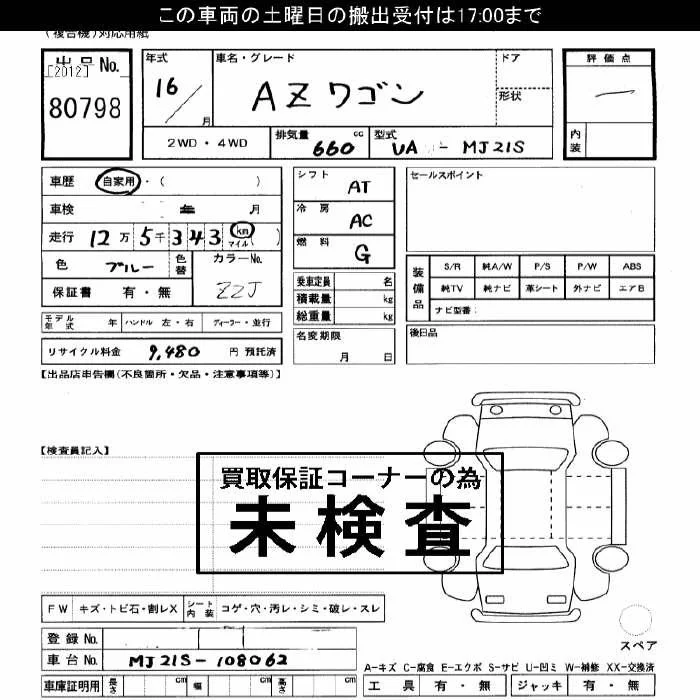 この車両の土曜日の搬出受付は17:00まで
(複合機)対応用紙
出品 No.
[2012]
80798
年式
16
月
車名・グレード
AZワゴン
ドア
形状
評価点
内装
2WD・4WD
排気量
660 cc
型式
UA - MJ21S
車歴 自家用・( )
車検 年 月
走行 12万5千343 km マイル ( )
色 ブルー 色替
カラーNo.
ZZJ
保証書 有・無
シフト AT
冷房 AC
燃料 G
乗車定員 名
積載量 kg
総重量 kg
名変期限
月 日
セールスポイント
装備品
S/R 純A/W P/S P/W ABS
純TV 純ナビ 革シート 外ナビ エアB
ナビ型番:
後日品
モデル年式 年 ハンドル 左・右 ディーラー・並行
リサイクル料金 9,480 円 預託済
【出品店申告欄(不良箇所・欠品・注意事項等)】
【検査員記入】
買取保証コーナーの為
未検査
FW キズ・トビ石・割レX シート内装 コゲ・穴・汚レ・シミ・破レ・スレ
登録 No.
車台 No. MJ21S-108062
車庫証明用 長さ cm 幅 cm 高さ cm
スペア
A-キズ C-腐食 E-エクボ S-サビ U-凹ミ W-補修 XX-交換済
工具 有・無 ジャッキ 有・無